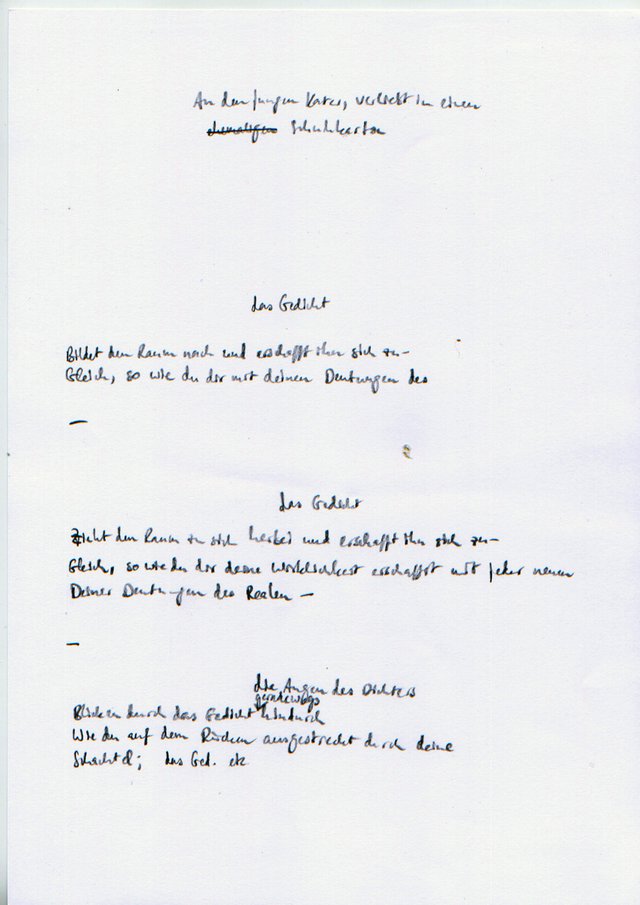 An den jungen Kater, verliebt in einen
ehemaligen Schuhkarton
das Gedicht
Bildet den Raum nach und erschafft ihn sich zu-
Gleich, so wie du dir mit deinen Deutungen des
—
das Gedicht
Zieht den Raum zu sich herbei und erschafft ihn sich zu-
Gleich, so wie du dir deine Wirklichkeit erschaffst mit jeder neuen
Deiner Deutungen des Realen —
—
die Augen des Dichters
geradewegs
Blicken durch das Gedicht hindurch
Wie du auf dem Rücken ausgestreckt durch deine
Schachtel; das Ged. etc